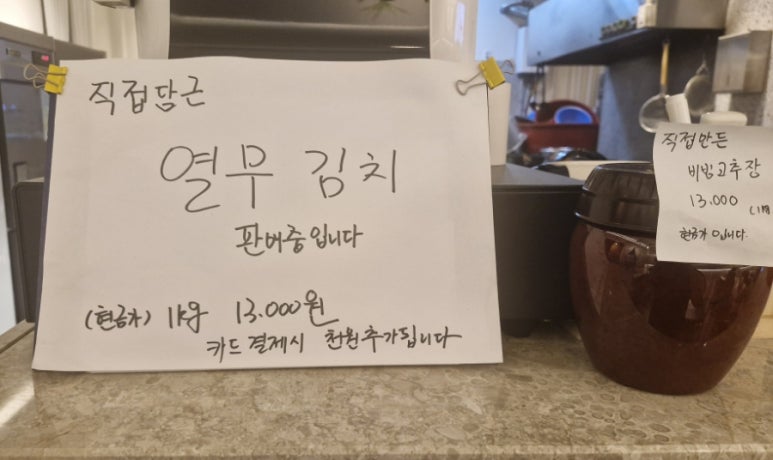 직접담근
열무 김치
판매중입니다
(현금가) 1kg 13.000원
카드 결제시 천원추가됩니다
직접만든
비빔고추장
13.000
현금가 입니다.